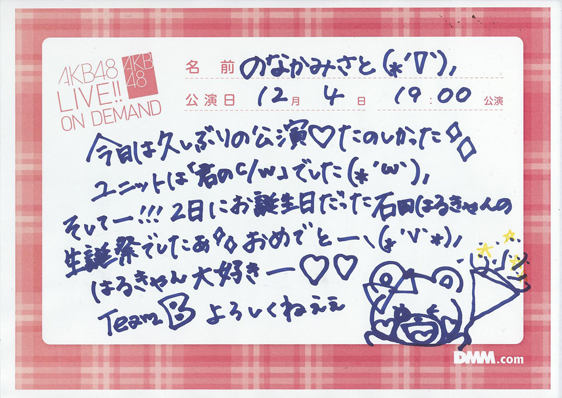 AKB48
LIVE!!
ON DEMAND
AKB
48
名前 のなかみさと(*´∇`),
公演日 12月 4日 19:00公演
今日は久しぶりの公演♡たのしかった
ユニットは「君のc/w」でした(*´ω`),
そしてー!!! 2日にお誕生日だった石田はるきゃんの
生誕祭でしたぁ おめでとー\(*´∨`*),
はるきゃん大好きー♡♡
Team B よろしくねぇぇ
DMM.com